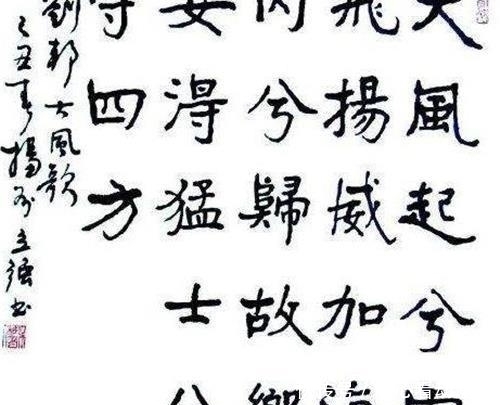 大風起兮雲
飛揚威加海
内兮歸故鄉
安得猛士兮
守四方
劉邦大風歌
己丑春揚州立强書